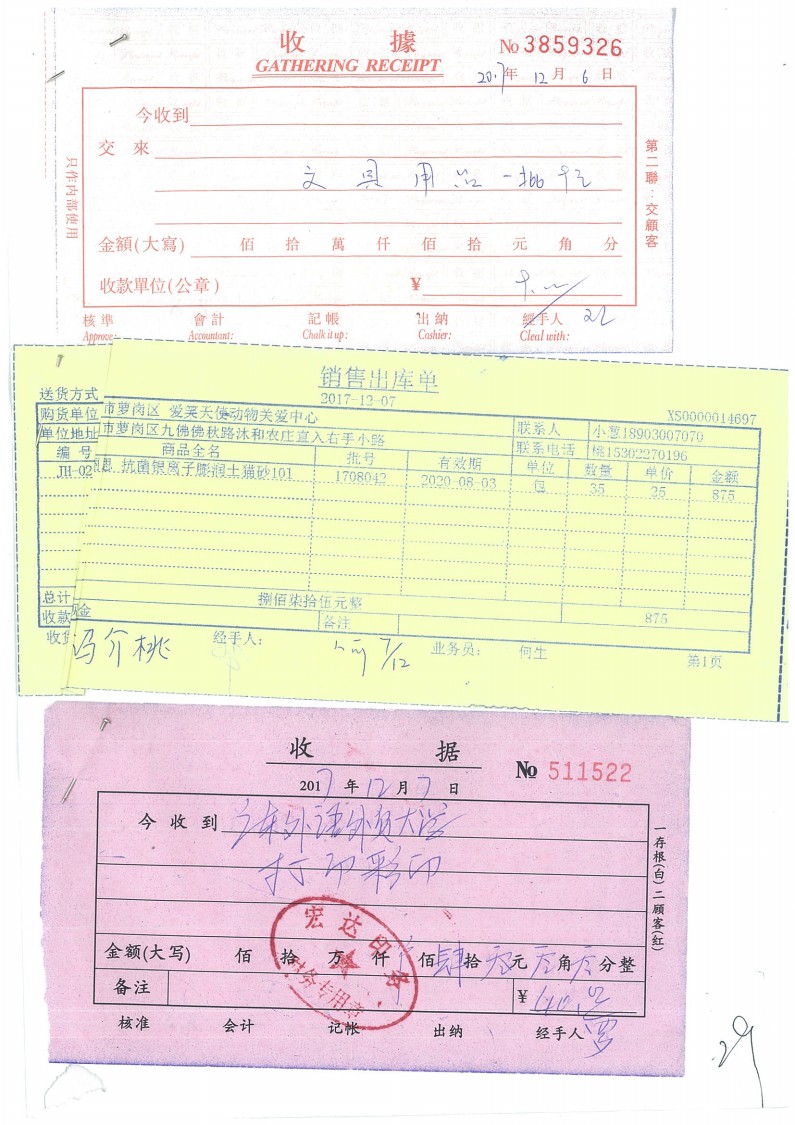 收 據
GATHERING RECEIPT
No 3859326
2017年 12月 6日
今收到
交 來
文具用品一批
金額(大寫) 佰 拾 萬 仟 佰 拾 元 角 分
收款單位(公章) ¥
核準 會計 記帳 出納 經手人
Approve: Accountant: Chalk it up: Cashier: Cleal with:
只作內部使用
第二聯:交顧客
销售出库单
2017-12-07
送货方式
XS0000014697
购货单位 市萝岗区 爱芙天使动物关爱中心 联系人 小葱18903007070
单位地址 市萝岗区九佛佛秋路沐和农庄直入右手小路 联系电话 桃15302270196
编号 商品全名 批号 有效期 单位 数量 单价 金额
JH-02 抗菌银离子膨润土猫砂101 1708042 2020-08-03 包 35 25 875
总计 捌佰柒拾伍元整
收款 金 备注 875
收货 冯介桃 经手人: 7/12 业务员: 何生 第1页
收 据
No 511522
2017年12月7日
今收到 广东外语外贸大学
打印彩印
金额(大写) 佰 拾 万 仟 佰 肆拾元 角 分整
备注 ¥ 40.00
核准 会计 记帐 出纳 经手人 罗
一存根(白)二顾客(红)
宏达印务
财务专用章
29